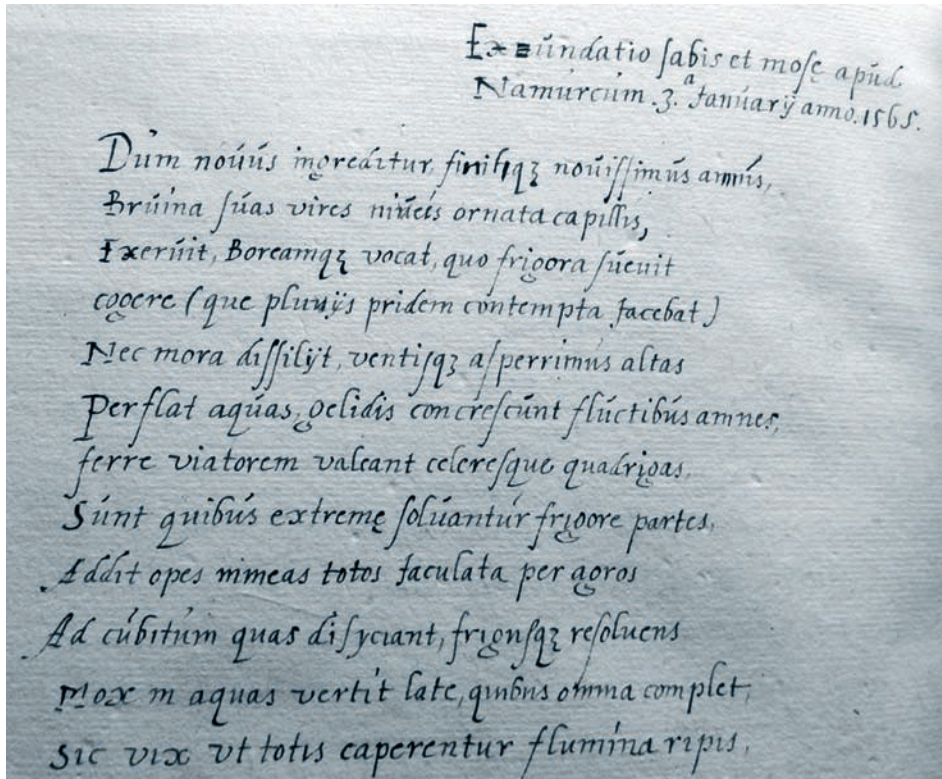 Exundatio sabis et mosę apud
Namurcum .3.ª Januarij anno. 1565.
Dum nouus ingreditur, finitqꝫ nouissimus annus,
Bruma suas vires niueis ornata capillis,
Exeruit, Boreamqꝫ vocat, quo frigora sueuit
cogere (que pluuijs pridem contempta jacebat)
Nec mora dissilijt, ventisqꝫ asperrimus altas
Perflat aquas, gelidis concrescunt fluctibus amnes,
ferre viatorem valeant celeresque quadrigas.
Sunt quibus extremę soluantur frigore partes,
Addit opes nimeas totos jaculata per agros
Ad cubitum quas disyciant, frigusqꝫ resoluens
Mox in aquas vertit late, quibus omnia complet,
Sic vix vt totis caperentur flumina ripis,